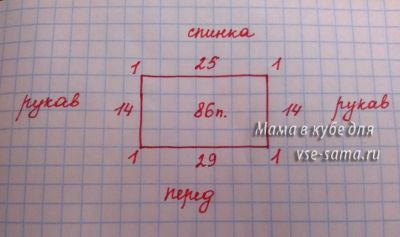 спинка
1 25 1
рукав 14 86п. 14 рукав
Мама в кубе для
vse-sama.ru
1 29 1
перед